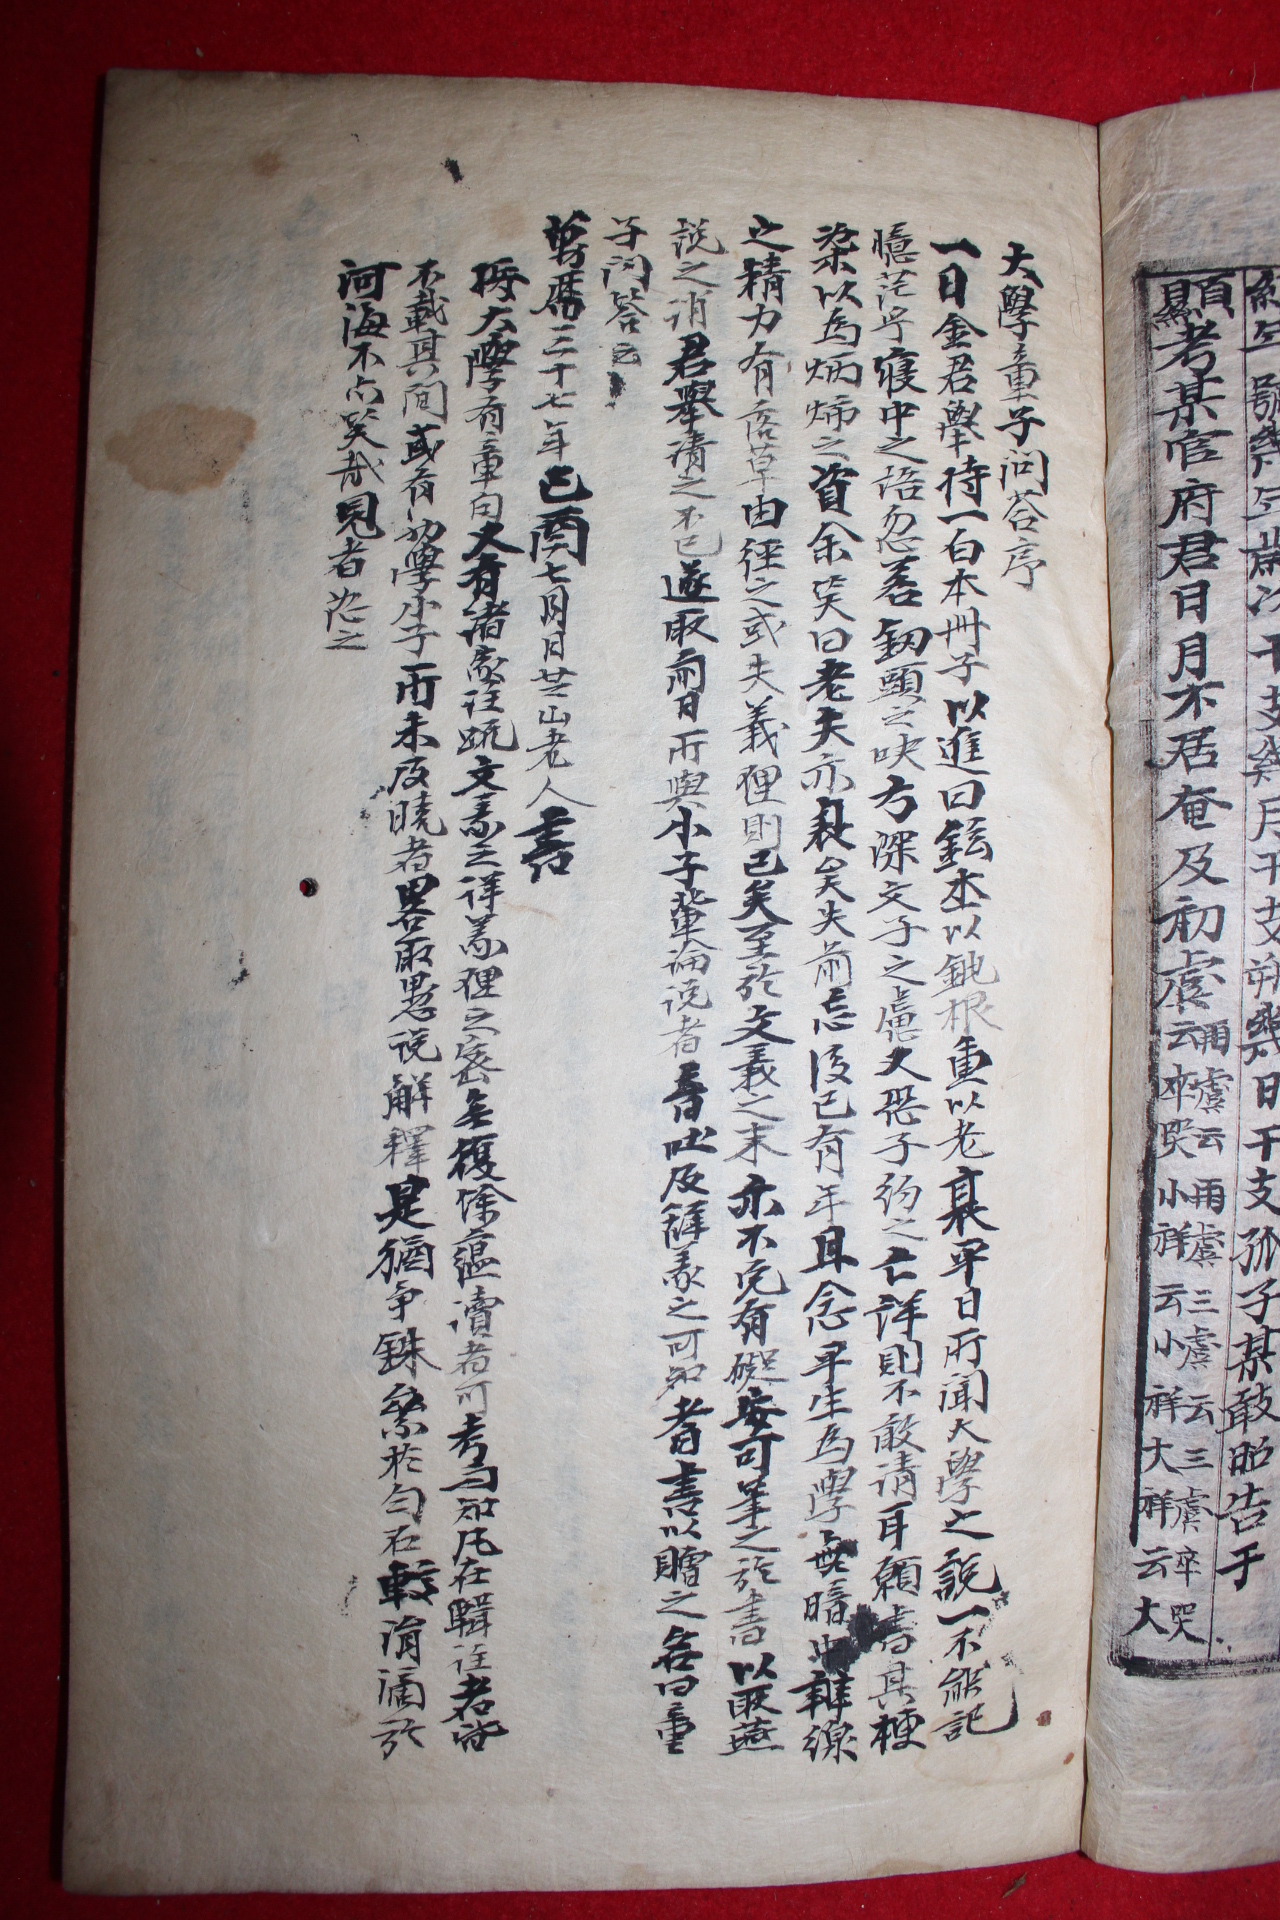 紀年號幾年歲次干支幾月干支朔幾日干支孤子某敢昭告于
顯考某官府君日月不居奄及初虞云卒哭小祥云小祥大祥云大
再虞云再虞三虞云三虞卒哭
大學童子问答序
一日金君舉持一白本冊子以進曰鉉坔以鈍根重以老衰平日所聞大學之說一不能記
臆茫乎寢中之語忽若釰頭之吷方深文子之慮又恐子約之亡洋則不敢請耳願書其梗
柒以為炳㷙之資余笑曰老夫亦衰矣失前忘後已有年且念平生為學無暗中雜線
之精力有落草由徑之或失義狸則已矣至於文義之末亦不免有礙安可筆之於書以取燕
說之誚君舉請之不已遂取前日所與小子輩論說者音吐及解義之可知者書以贈之名曰童
子问答云
萬曆三十七年己酉七月日芝山老人書
將大學有章句又有諸家註疏文義之詳義狸之密無復餘蘊讀者可考而知凡在輯註者皆
不載其间或有幼學小子所未及曉者畧取愚說解釋是猶争銖絫於勻石較涓滴於
河海不亦笑哉見者恕之